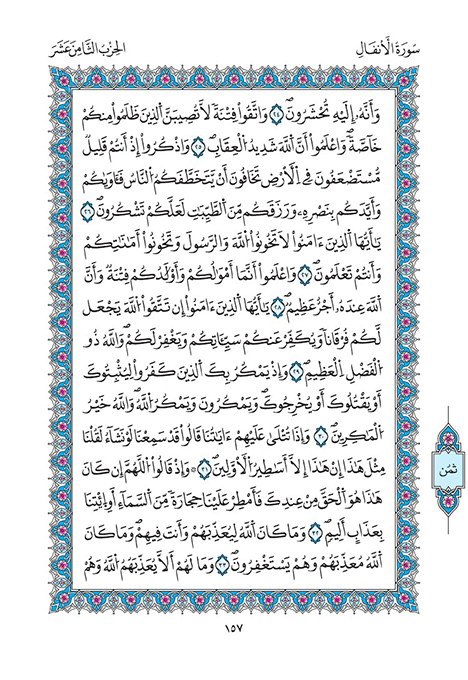 سُورَةُ الْأَنفَالِ
الحِزْبُ الثَّامِنَ عَشَرَ
وَأَنَّهُۥٓ إِلَيْهِ تُحْشَرُونَۖ ٢٤ وَاتَّقُوا۟ فِتْنَةٗ لَّا تُصِيبَنَّ ٱلَّذِينَ ظَلَمُوا۟ مِنكُمْ
خَآصَّةٗۖ وَاعْلَمُوٓا۟ أَنَّ ٱللَّهَ شَدِيدُ ٱلْعِقَابِۖ ٢٥ وَاذْكُرُوٓا۟ إِذْ أَنتُمْ قَلِيلٞ
مُّسْتَضْعَفُونَ فِے ٱلْأَرْضِ تَخَافُونَ أَنْ يَّتَخَطَّفَكُمُ ٱلنَّاسُ فَـَٔاو۪يٰكُمْ
وَأَيَّدَكُم بِنَصْرِهِۦ وَرَزَقَكُم مِّنَ ٱلطَّيِّبَٰتِ لَعَلَّكُمْ تَشْكُرُونَۖ ٢٦
يَٰٓأَيُّهَا ٱلَّذِينَ ءَامَنُوا۟ لَا تَخُونُوا۟ ٱللَّهَ وَالرَّسُولَ وَتَخُونُوٓا۟ أَمَٰنَٰتِكُمْ
وَأَنتُمْ تَعْلَمُونَۖ ٢٧ وَاعْلَمُوٓا۟ أَنَّمَآ أَمْوَٰلُكُمْ وَأَوْلَٰدُكُمْ فِتْنَةٞ وَأَنَّ
ٱللَّهَ عِندَهُۥٓ أَجْرٌ عَظِيمٞۖ ٢٨ يَٰٓأَيُّهَا ٱلَّذِينَ ءَامَنُوٓا۟ إِن تَتَّقُوا۟ ٱللَّهَ يَجْعَل
لَّكُمْ فُرْقَاناٗ وَيُكَفِّرْ عَنكُمْ سَيِّـَٔاتِكُمْ وَيَغْفِرْ لَكُمْۖ وَاللَّهُ ذُو
ٱلْفَضْلِ ٱلْعَظِيمِۖ ٢٩ وَإِذْ يَمْكُرُ بِكَ ٱلَّذِينَ كَفَرُوا۟ لِيُثْبِتُوكَ
أَوْ يَقْتُلُوكَ أَوْ يُخْرِجُوكَۖ وَيَمْكُرُونَ وَيَمْكُرُ ٱللَّهُۖ وَاللَّهُ خَيْرُ
ٱلْمَٰكِرِينَۖ ٣٠ وَإِذَا تُتْلَىٰ عَلَيْهِمْ ءَايَٰتُنَا قَالُوا۟ قَدْ سَمِعْنَا لَوْ نَشَآءُ لَقُلْنَا
مِثْلَ هَٰذَآ إِنْ هَٰذَآ إِلَّآ أَسَٰطِيرُ ٱلْأَوَّلِينَۖ ٣١ ۞ وَإِذْ قَالُوا۟ ٱللَّهُمَّ إِن كَانَ
هَٰذَا هُوَ ٱلْحَقَّ مِنْ عِندِكَ فَأَمْطِرْ عَلَيْنَا حِجَارَةٗ مِّنَ ٱلسَّمَآءِ أَوِ ٱئْتِنَا
بِعَذَابٍ أَلِيمٖۖ ٣٢ وَمَا كَانَ ٱللَّهُ لِيُعَذِّبَهُمْ وَأَنتَ فِيهِمْۖ وَمَا كَانَ
ٱللَّهُ مُعَذِّبَهُمْ وَهُمْ يَسْتَغْفِرُونَۖ ٣٣ وَمَا لَهُمْ أَلَّا يُعَذِّبَهُمُ ٱللَّهُ وَهُمْ
ثُمُن
١٥٧